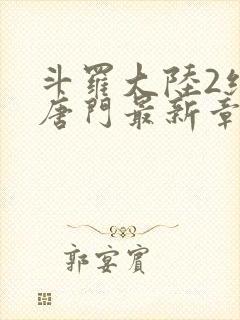 斗羅大陸2
唐門最新章
郭宴賓